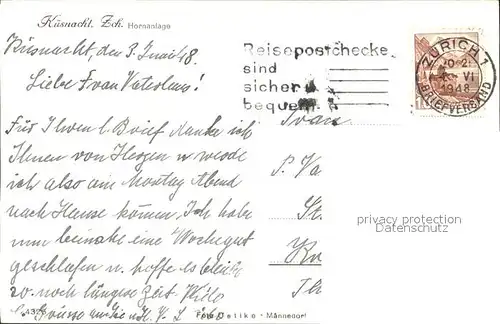 Küsnacht. Zch. Hornanlage
Küsnacht, den 3. Juni 48.
Liebe Frau Vaterlaus!
Für Ihren l. Brief danke ich
Ihnen von Herzen u. werde
ich also am Montag Abend
nach Hause kommen. Ich habe
nun beinahe eine Woche gut
geschlafen u. hoffe es bleibt
so noch längere Zeit. Viele
Grüsse
Reisepostchecke
sind
sicher
bequem
ZÜRICH 1
VI
1948
BRIEFVERSAND
Frau
P. Va
St.
Th
privacy protection
Datenschutz
Foto Oetiko - Männedorf